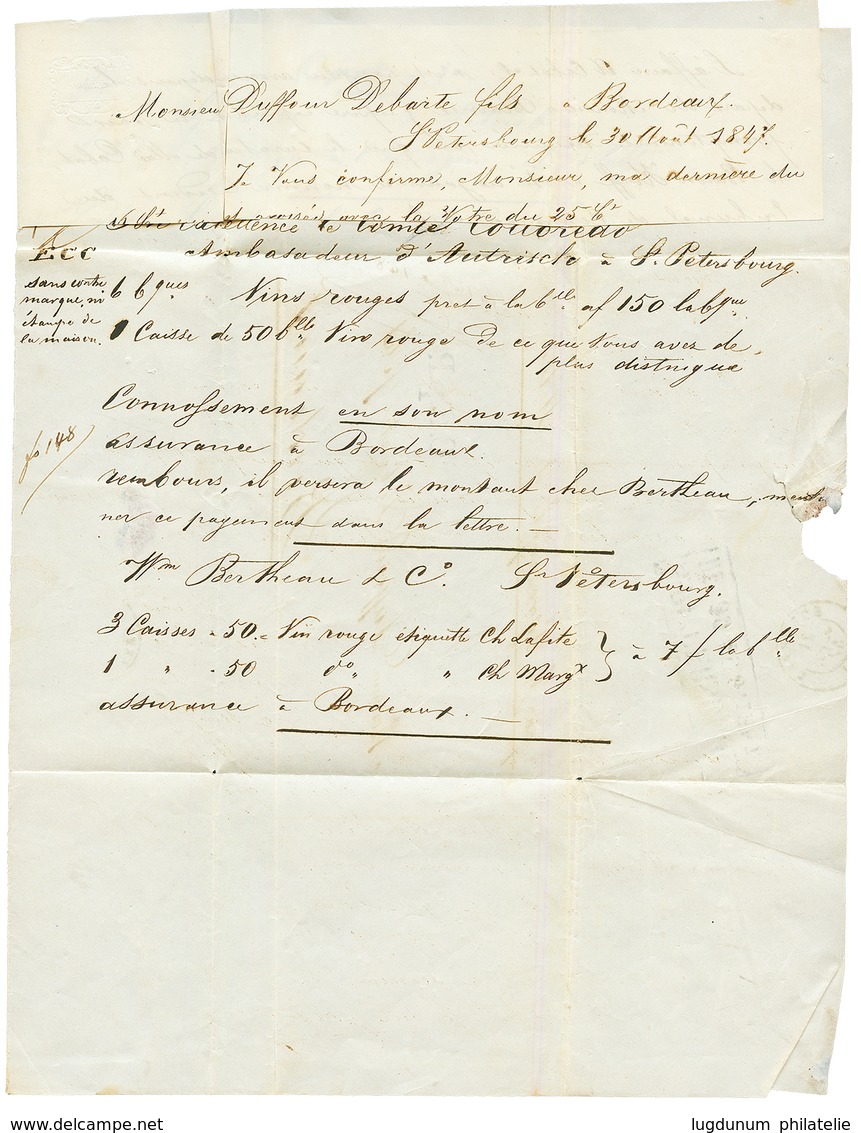 Monsieur Duffour Debarte fils à Bordeaux.
St Petersbourg le 30 Août 1847.
Je Vous confirme, Monsieur, ma dernière du
avec la Votre du 25 Ct
le Comte Colloredo
ECC
Ambasadeur d'Autriche à St. Petersbourg.
sans contre
marque, ni
étampe de
la maison.
6 bques Vins rouges pret à la blle af 150 la bque.
1 Caisse de 50 blle Vin rouge de ce que Vous avez de
plus distingué
Connossement en son nom
fo 148
assurance à Bordeaux.
rembours, il versera le montant chez Bertheau, mentio
ner ce payement dans la lettre. —
Wm Bertheau & Co. St Petersbourg.
3 Caisses - 50. = Vin rouge étiquette Ch Lafite } à 7/ la blle
1 " - 50 do " Ch Margx
assurance à Bordeaux. —
delcampe.net
lugdunum philatelie